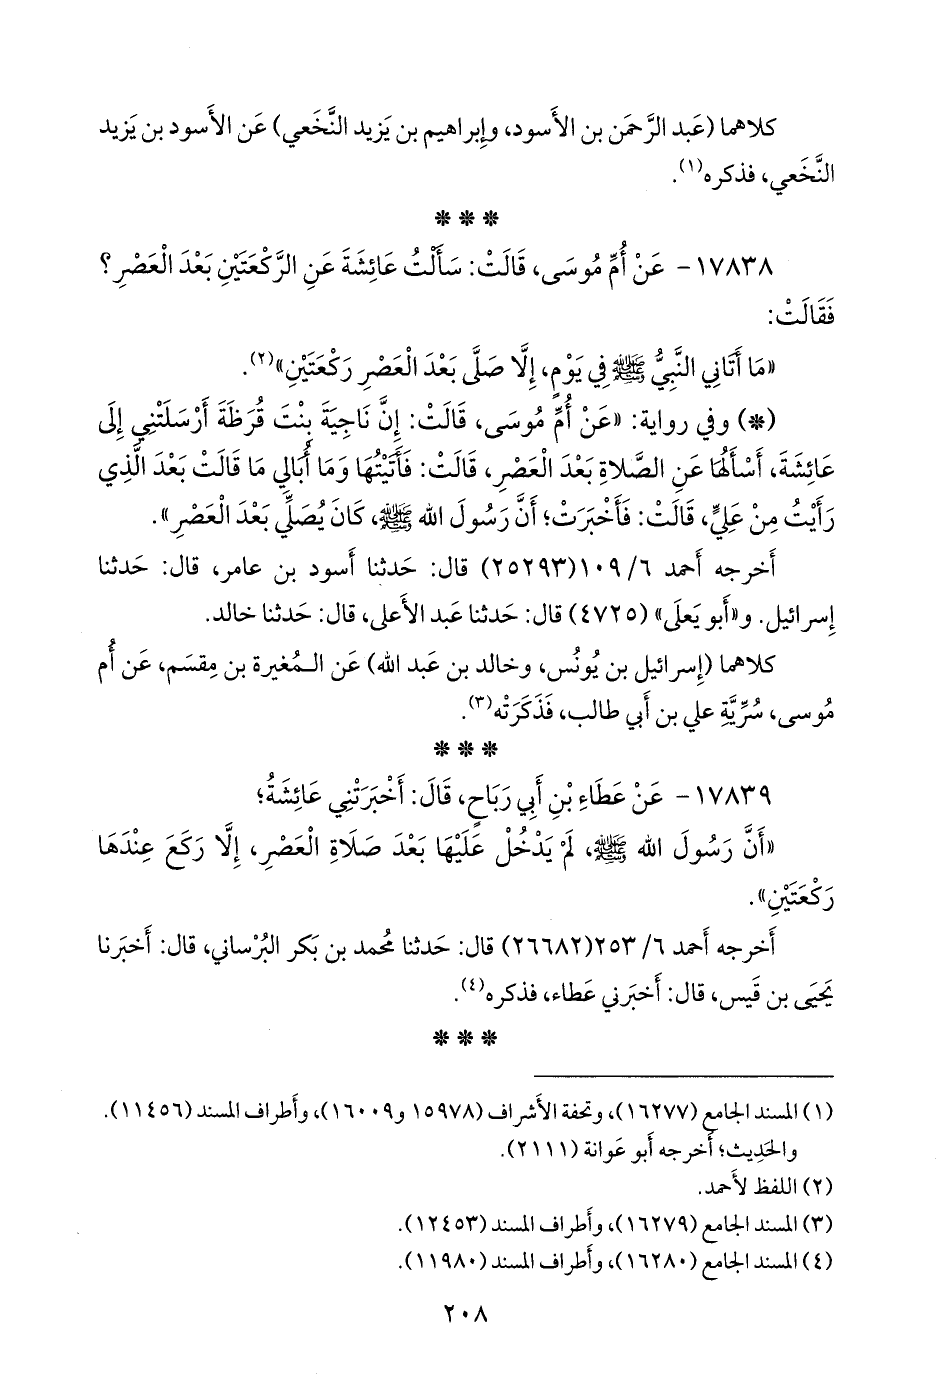 كلاهما (عَبد الرَّحمَن بن الأَسود، وإِبراهيم بن يَزيد النَّخَعي) عَن الأَسود بن يَزيد
النَّخَعي، فذكره(١).
* * *
١٧٨٣٨- عَنْ أُمِّ مُوسَى، قَالَتْ: سَأَلْتُ عَائِشَةَ عَنِ الرَّكْعَتَيْنِ بَعْدَ الْعَصْرِ؟
فَقَالَتْ:
«مَا أَتَانِي النَّبِيُّ ﷺ فِي يَوْمٍ، إِلَّا صَلَّى بَعْدَ الْعَصْرِ رَكْعَتَيْنِ»(٢).
(*) وفي رواية: «عَنْ أُمِّ مُوسَى، قَالَتْ: إِنَّ نَاجِيَةَ بِنْتَ قُرَظَةَ أَرْسَلَتْنِي إِلَى
عَائِشَةَ، أَسْأَلُهَا عَنِ الصَّلاةِ بَعْدَ الْعَصْرِ، قَالَتْ: فَأَتَيْتُهَا وَمَا أُبَالِي مَا قَالَتْ بَعْدَ الَّذِي
رَأَيْتُ مِنْ عَلِيٍّ، قَالَتْ: فَأَخْبَرَتْ؛ أَنَّ رَسُولَ الله ﷺ، كَانَ يُصَلِّي بَعْدَ الْعَصْرِ».
أَخرجه أَحمد ٦/ ١٠٩(٢٥٢٩٣) قال: حَدثنا أَسود بن عامر، قال: حَدثنا
إِسرائيل. و«أَبو يَعلَى» (٤٧٢٥) قال: حَدثنا عَبد الأَعلى، قال: حَدثنا خالد.
كلاهما (إِسرائيل بن يُونُس، وخالد بن عَبد الله) عَن المُغيرة بن مِقسَم، عَن أُم
مُوسى، سُرِّيَّةِ علي بن أَبي طالب، فَذَكَرَتْه(٣).
* * *
١٧٨٣٩- عَنْ عَطَاءِ بْنِ أَبِي رَبَاحٍ، قَالَ: أَخْبَرَتْنِي عَائِشَةُ؛
«أَنَّ رَسُولَ الله ﷺ، لَمْ يَدْخُلْ عَلَيْهَا بَعْدَ صَلَاةِ الْعَصْرِ، إِلَّا رَكَعَ عِنْدَهَا
رَكْعَتَيْنِ».
أَخرجه أَحمد ٦/ ٢٥٣(٢٦٦٨٢) قال: حَدثنا مُحمد بن بَكر البُرْساني، قال: أَخبَرنا
يَحيَى بن قَيس، قال: أَخبَرني عَطاء، فذكره(٤).
* * *
(١) المسند الجامع (١٦٢٧٧)، وتحفة الأَشراف (١٥٩٧٨ و١٦٠٠٩)، وأَطراف المسند (١١٤٥٦).
والحَدِيث؛ أَخرجه أَبو عَوانة (٢١١١).
(٢) اللفظ لأَحمد.
(٣) المسند الجامع (١٦٢٧٩)، وأَطراف المسند (١٢٤٥٣).
(٤) المسند الجامع (١٦٢٨٠)، وأَطراف المسند (١١٩٨٠).
٢٠٨